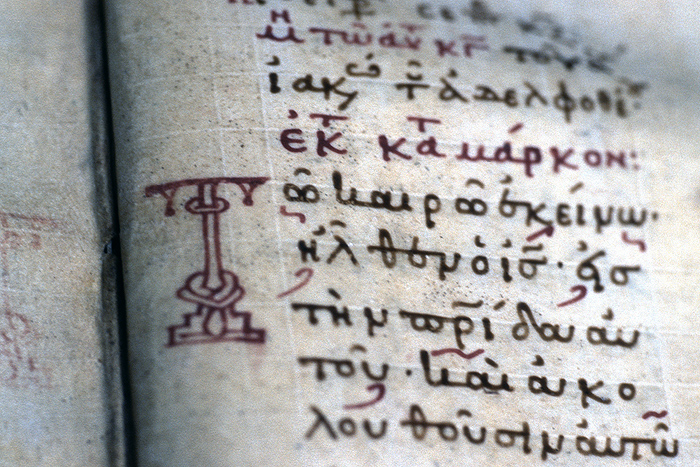 μη τῶ αὐ κγ τοῦ
ἰακω τ ἀδελφοθέ·
ἐκ τ κατ μάρκον:
Τῶ καιρῶ ἐκείνω·
ἦλθεν ὁ ις̅· εἰσ
τὴν πρ̅ίδα αὐ
τοῦ· καὶ ἀκο
λουθοῦσιν αὐτῶ